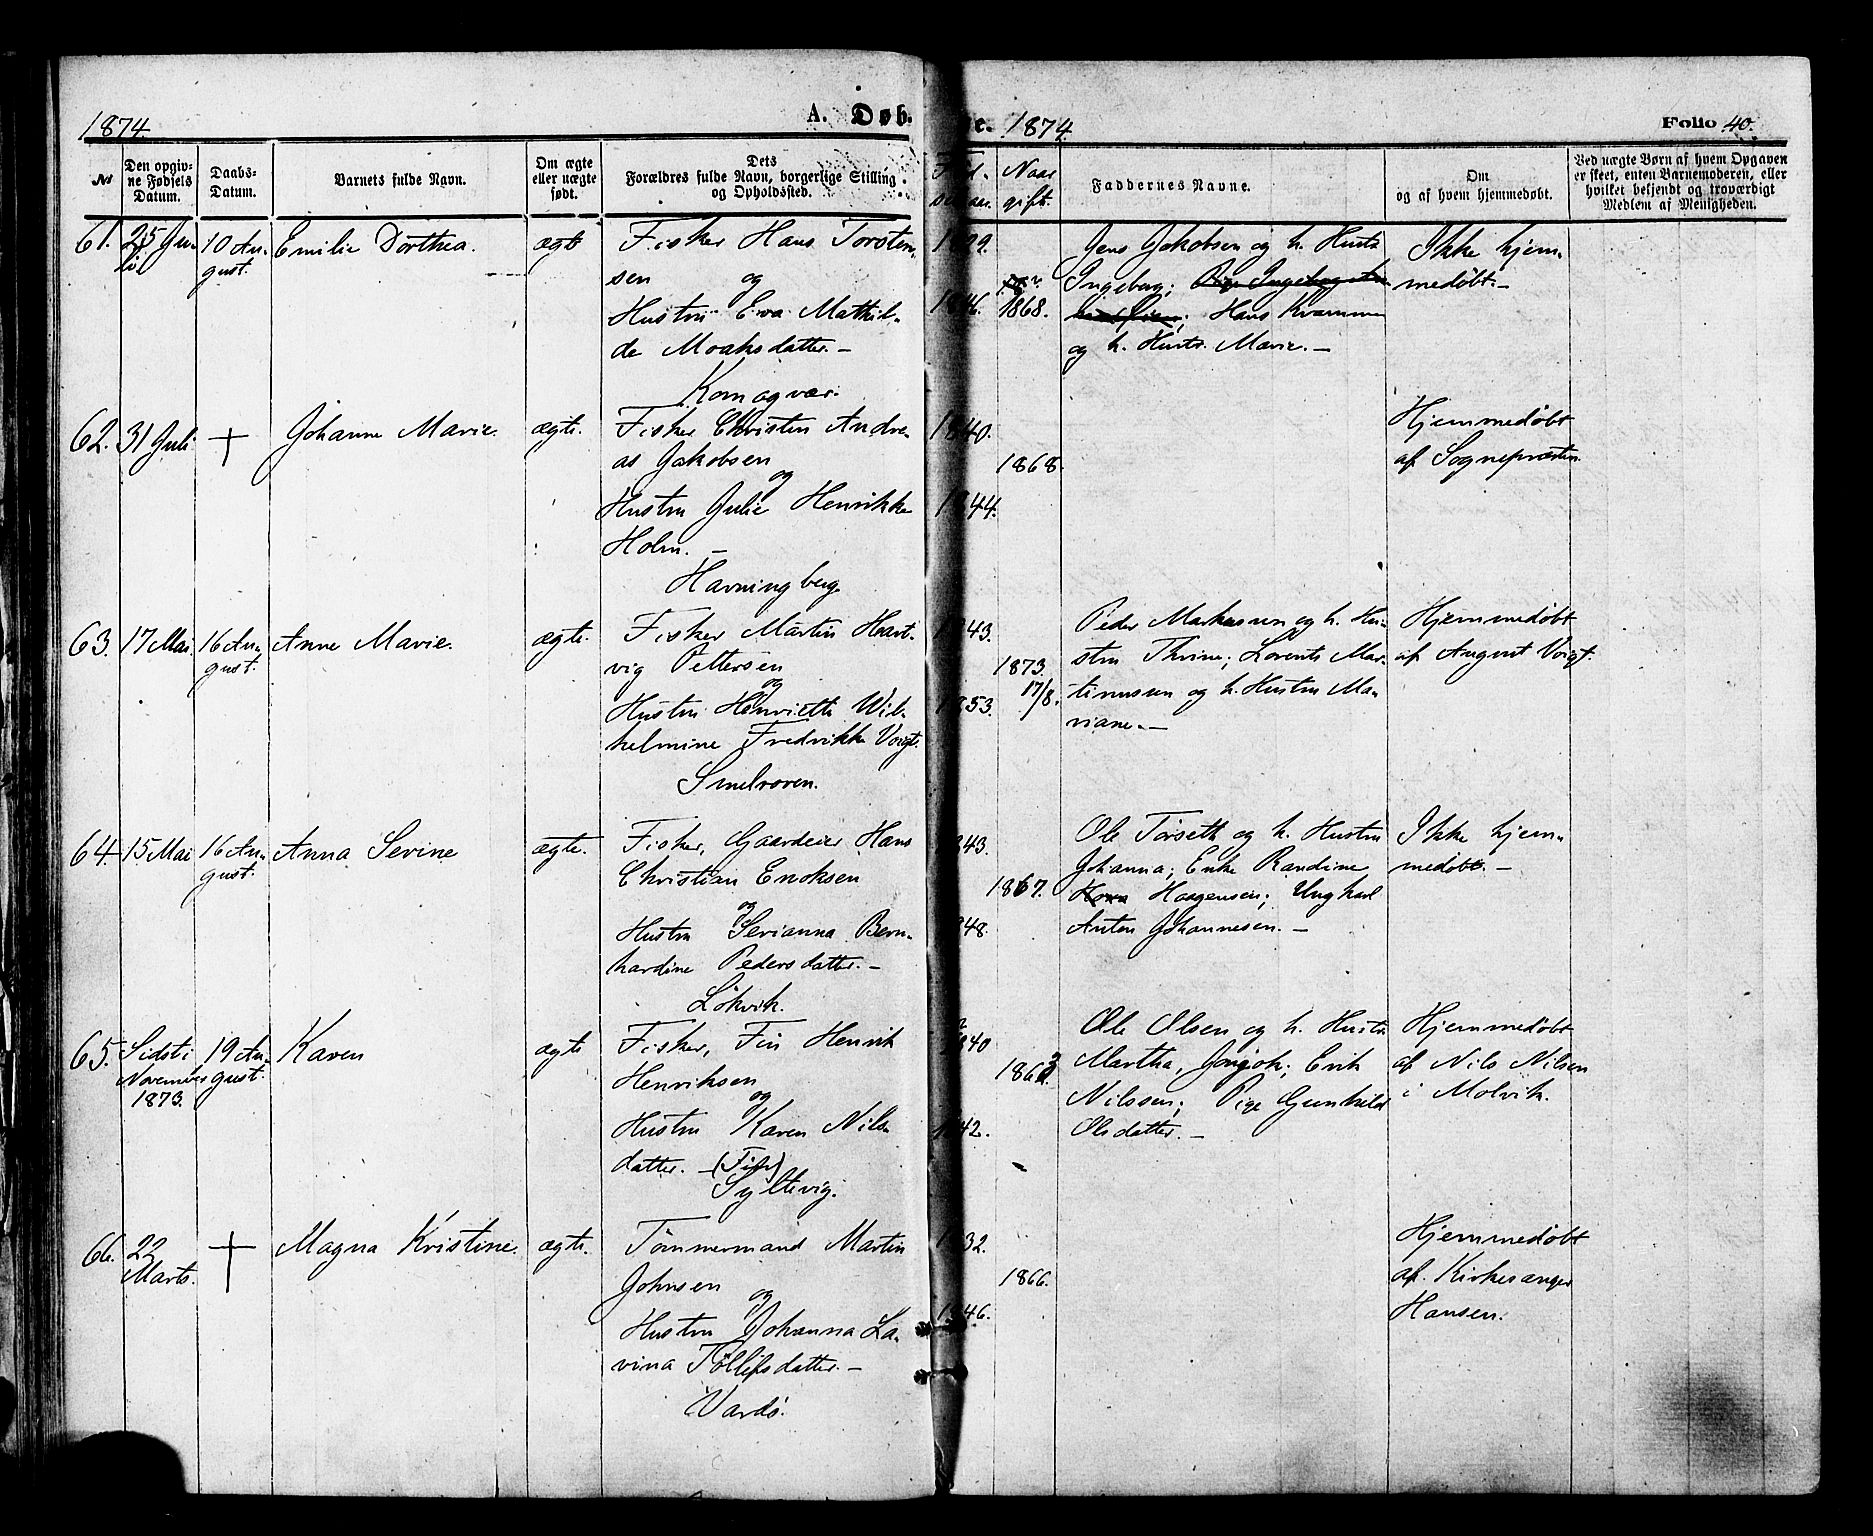 1874
A. Døb.
e.
1874
Folio 40.
Nº
Den opgiv-
ne Fødsels
Datum.
Daabs-
Datum.
Barnets fulde Navn.
Om ægte
eller uægte
født.
Dets
Forældres fulde Navn, borgerlige Stilling
og Opholdssted.
Naar
gift.
Faddernes Navne.
Om
og af hvem hjemmedøbt.
Ved uægte Børn af hvem Opgaven
er skeet, enten Barnemoderen, eller
hvilket bekjendt og troværdigt
Medlem af Menigheden.
61. 25 Ju-
li
10 Au-
gust.
Emilie Dorthea.
ægte
Fisker Hans Torsten-
sen og
Hustru Eva Mathil-
de Moaksdatter. -
Komagvær.
1868.
Jens Jakobsen og h. Hustr
Ingeborg; Pige
Hans Kvamme
og h. Hustr. Marie. -
Ikke hjem-
medøbt. -
62. 31 Juli
†
Johanne Marie.
ægte.
Fisker Christen Andre-
as Jakobsen
og
Hustru Julie Henrikke
Holm. -
Havningberg
1840.
1844.
1868.
Hjemmedøbt
af Sognepræsten.
63. 17 Mai
16 Au-
gust.
Anne Marie.
ægte.
Fisker Martin Hart-
vig Pettersen
og
Hustru Henriette Wil-
helmine Fredrikke Voigt.
Smelroren.
1843.
1853.
1873.
17/8.
Peder Markussen og h. Hu-
stru Thrine; Lorents Mar-
tinussen og h. Hustru Ma-
riane. -
Hjemmedøbt
af August Voigt.
64. 15 Mai
16 Au-
gust.
Anna Sevine
ægte.
Fisker, Gaardeier Hans
Christian Enoksen
og
Hustru Serianna Bern-
hardine Pedersdatter. -
Løkvik.
1843.
1848.
1867.
Ole Torseth og h. Hustru
Johanna; Enke Randine
Haagensen; Ungkarl
Anton Johannesen. -
Ikke hjem-
medøbt. -
65. Sidst i
November
1873.
19 Au-
gust.
Karen
ægte
Fisker, Fin Henrik
Henriksen
og
Hustru Karen Nils-
datter. - (Fin)
Syltevig.
1840
1842.
1863
Ole Olsen og h. Hustr
Martha, Gorjok; Erik
Nilssen; Pige Gunhild
Olsdatter. -
Hjemmedøbt
af Nils Nilsen
i Molvik.
66. 22
Marts.
†
Magna Kristine.
ægte.
Tømmermand Martin
Johnsen
og
Hustru Johanna La-
vina Tollefsdatter. -
Vardö.
1832.
1846.
1866.
Hjemmedøbt
af Kirkesanger
Hansen.